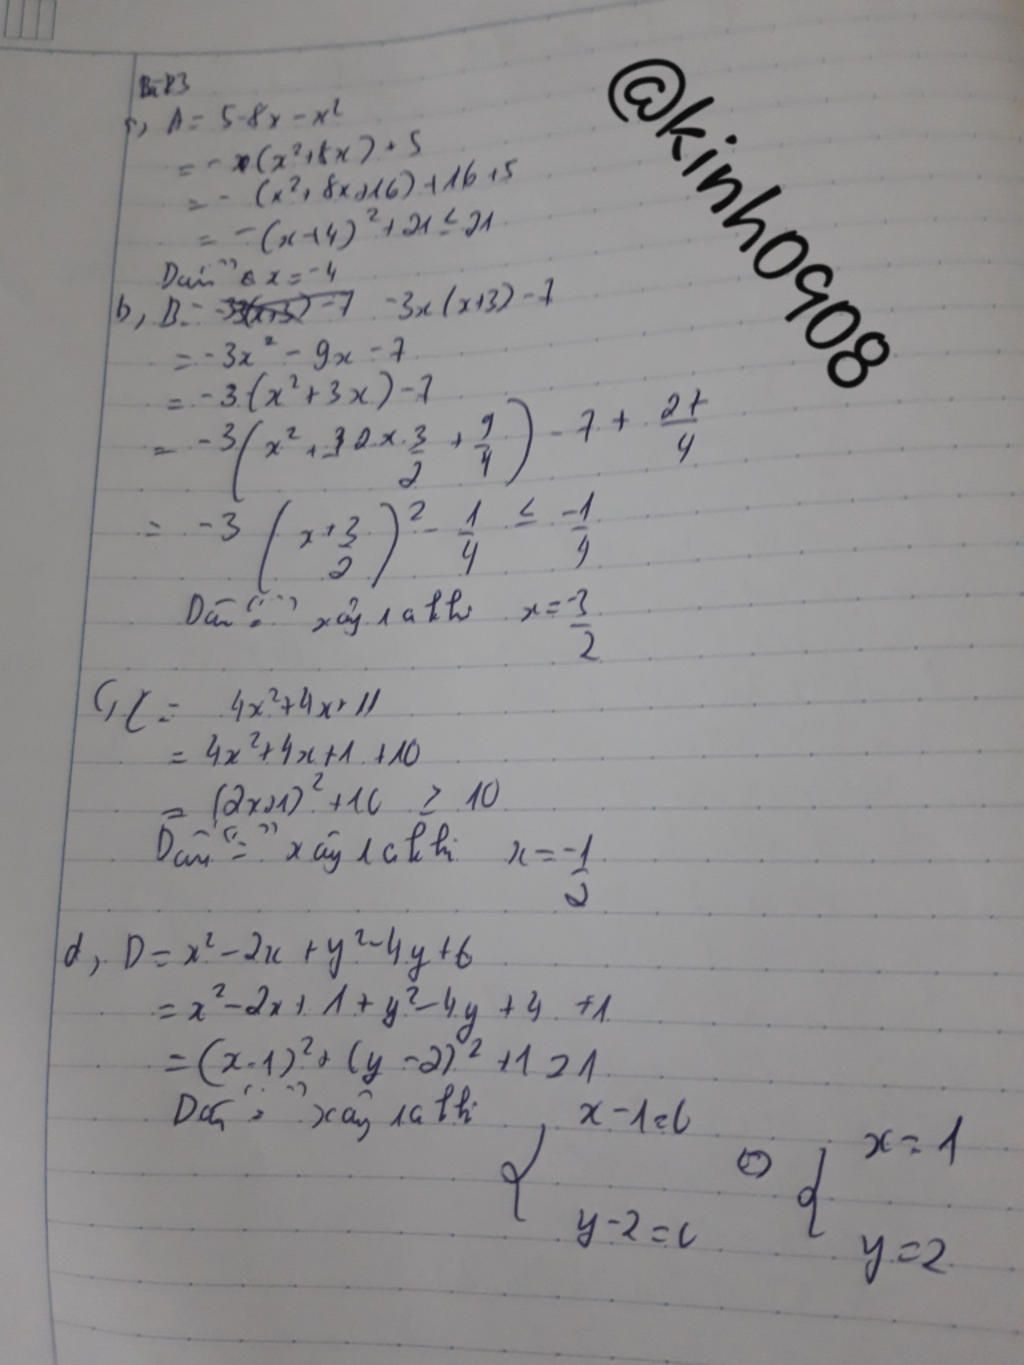 Bài 3
a, A = 5-8x-x²
= -(x²+8x)+5
= -(x²+8x+16)+16+5
= -(x+4)²+21 ≤ 21
Dấu "=" x=-4
b, B = -3x(x+3)-7
= -3x² - 9x - 7
= -3(x²+3x)-7
= -3(x² + 2x.3/2 + 9/4) - 7 + 27/4
= -3(x+3/2)² - 1/4 ≤ -1/4
Dấu "=" xảy ra khi x = -3/2
C, C = 4x²+4x+11
= 4x²+4x+1+10
= (2x+1)²+10 ≥ 10
Dấu "=" xảy ra khi x = -1/2
d, D = x²-2x+y²-4y+6
= x²-2x+1+y²-4y+4+1
= (x-1)²+(y-2)²+1 ≥ 1
Dấu "=" xảy ra khi { x-1=0 ⇔ { x=1
y-2=0 y=2
@kinh0908